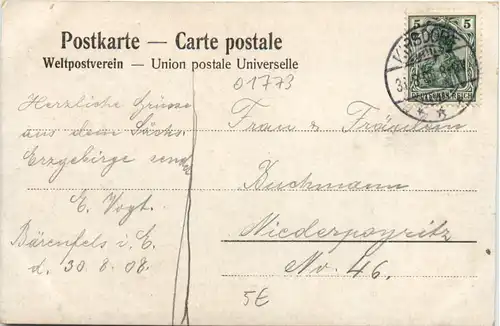 Postkarte — Carte postale
Weltpostverein — Union postale Universelle
01773
5
5
DEUTSCHES REICH
Herzliche Grüsse
aus dem Sächs.
Erzgebirge sendet
E. Vogt.
Bärenfels i. E.
d. 30.8.08.
Frau & Fräulein
Buchmann
Niederpoyritz
No. 46.
5E